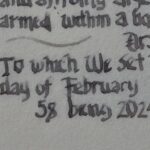 armed within a bo
To which We set
day of February
58 being 2024